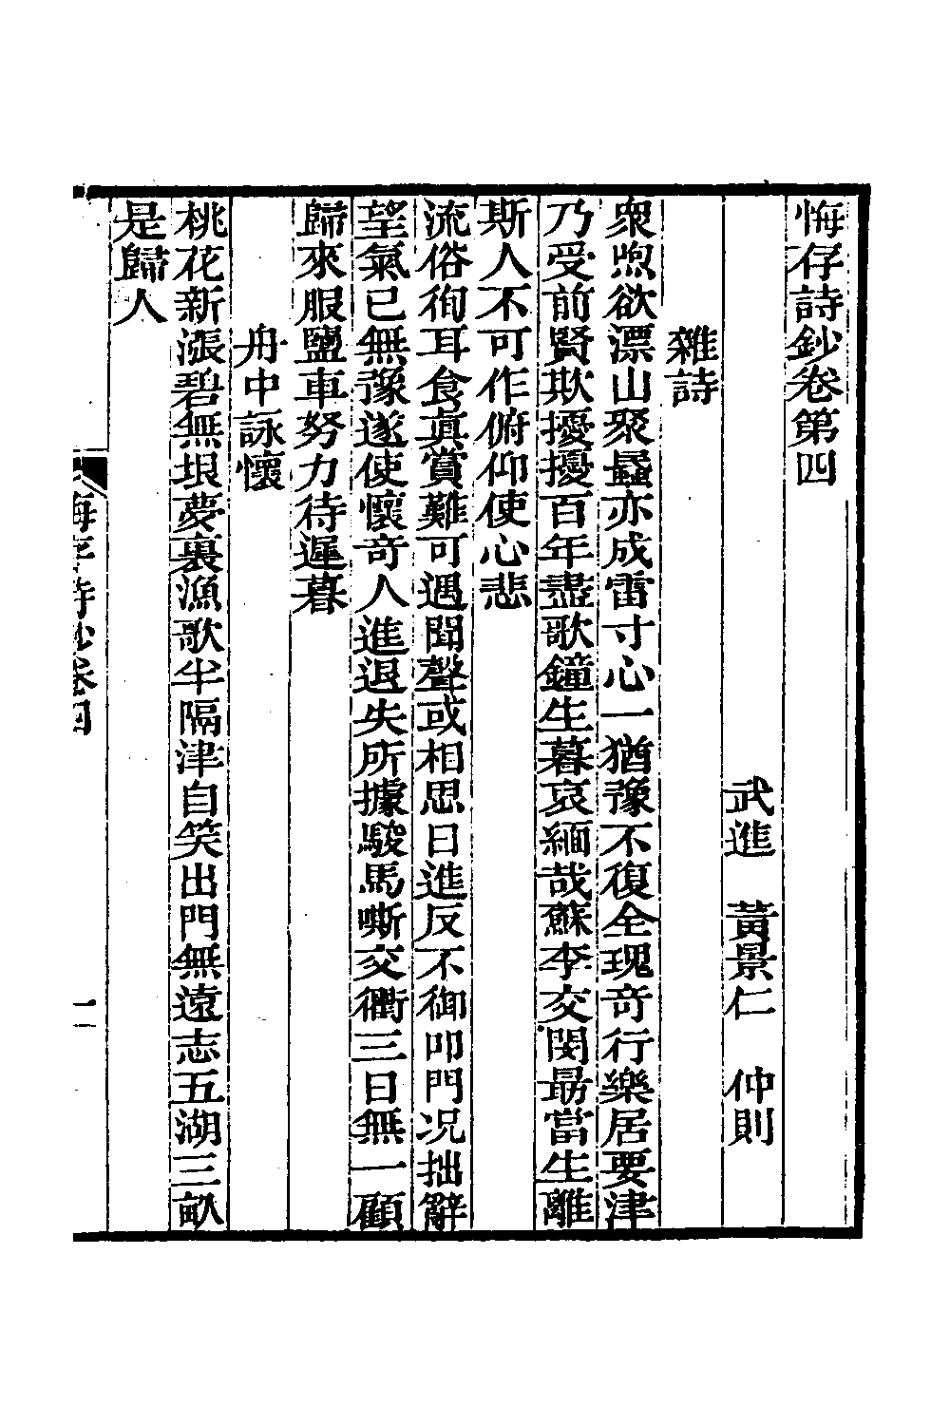 悔存詩鈔卷第四
武進　黃景仁　仲則
雜詩
衆喣欲漂山聚蟁亦成雷寸心一猶豫不復全瑰奇行樂居要津
乃受前賢欺擾擾百年盡歌鐘生暮哀緬哉蘇李交閔勗當生離
斯人不可作俯仰使心悲
流俗徇耳食眞賞難可遇聞聲或相思日進反不御叩門况拙辭
望氣已無豫遂使懷奇人進退失所據駿馬嘶交衢三日無一顧
歸來服鹽車努力待遲暮
舟中詠懷
桃花新漲碧無垠夢裏漁歌半隔津自笑出門無遠志五湖三畝
是歸人
悔存詩鈔卷四
一